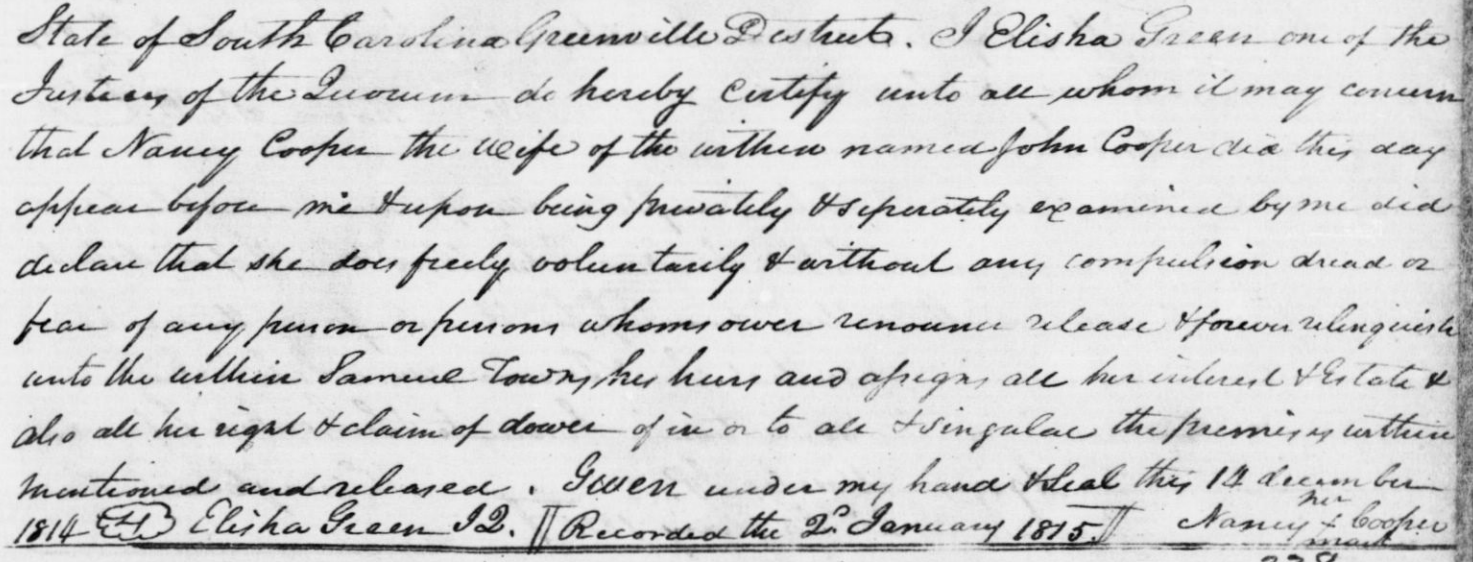 State of South Carolina Greenville District. I Elisha Green one of the
Justices of the Quorum do hereby Certify unto all whom it may concern
that Nancy Cooper the wife of the within named John Cooper did this day
appear before me & upon being privately & seperately examined by me did
declare that she does freely voluntarily & without any compulsion dread or
fear of any person or persons whomsoever renounce release & forever relinquish
unto the within Samuel Towns his heirs and assigns all her interest & Estate &
also all her right & claim of dower of in or to all & singular the premises within
mentioned and released. Given under my hand & seal this 14 december
1814 Elisha Green J Q. || Recorded the 2d January 1815. || Nancy her x mark Cooper